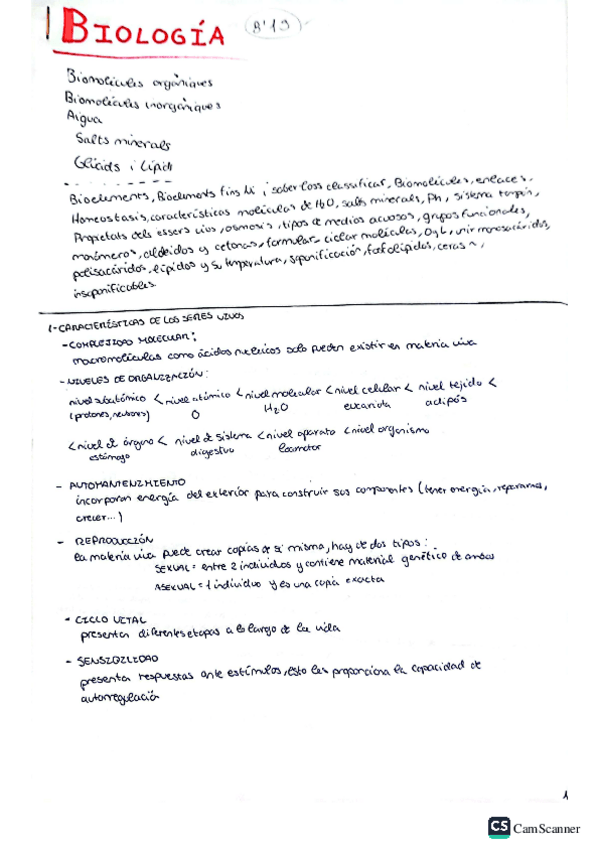 BIOLOGÍA 8'19
Biomolècules orgàniques
Biomolècules inorgàniques
Aigua
Salts minerals
Glúcids i Lípids
Bioelements, Bioelements fins Li i saber-los classificar, Biomolècules, enlaces,
Homeostasis, características moléculas de H2O, salts minerals, Ph, sistema tampón,
Propietats dels essers vius, osmosis, tipos de medios acuosos, grupos funcionales,
monómeros, aldeidos y cetonas, formular, ciclar moléculas, D y L, unir monosacáridos,
polisacáridos, lípidos y su temperatura, saponificación, fosfolípidos, ceras ~,
insaponificables.
1-CARACTERÍSTICAS DE LOS SERES VIVOS
-COMPLEJIDAD MOLECULAR:
macromoléculas como ácidos nucleicos solo pueden existir en materia viva
-NIVELES DE ORGANIZACIÓN:
nivel subatómico < nivel atómico < nivel molecular < nivel celular < nivel tejido <
(protones, neutrones) O H2O eucariota adipós
< nivel de órgano < nivel de sistema < nivel aparato < nivel organismo
estómago digestivo locomotor
- AUTOMANTENIMIENTO
incorporan energía del exterior para construir sus componentes (tener energía, repararnos,
crecer...)
- REPRODUCCIÓN
la materia viva puede crear copias de si misma, hay de dos tipos:
SEXUAL = entre 2 individuos y contiene material genético de ambos
ASEXUAL = 1 individuo y es una copia exacta
- CICLO VITAL
presentan diferentes etapas a lo largo de la vida
- SENSIBILIDAD
presenta respuestas ante estímulos, esto les proporciona la capacidad de
autorregulación
1
CS CamScanner